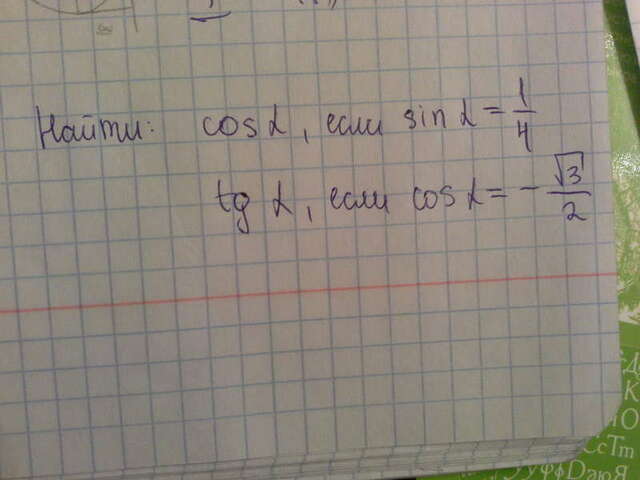 Найти: cos α, если sin α = 1/4
tg α, если cos α = - √3/2
СсТт